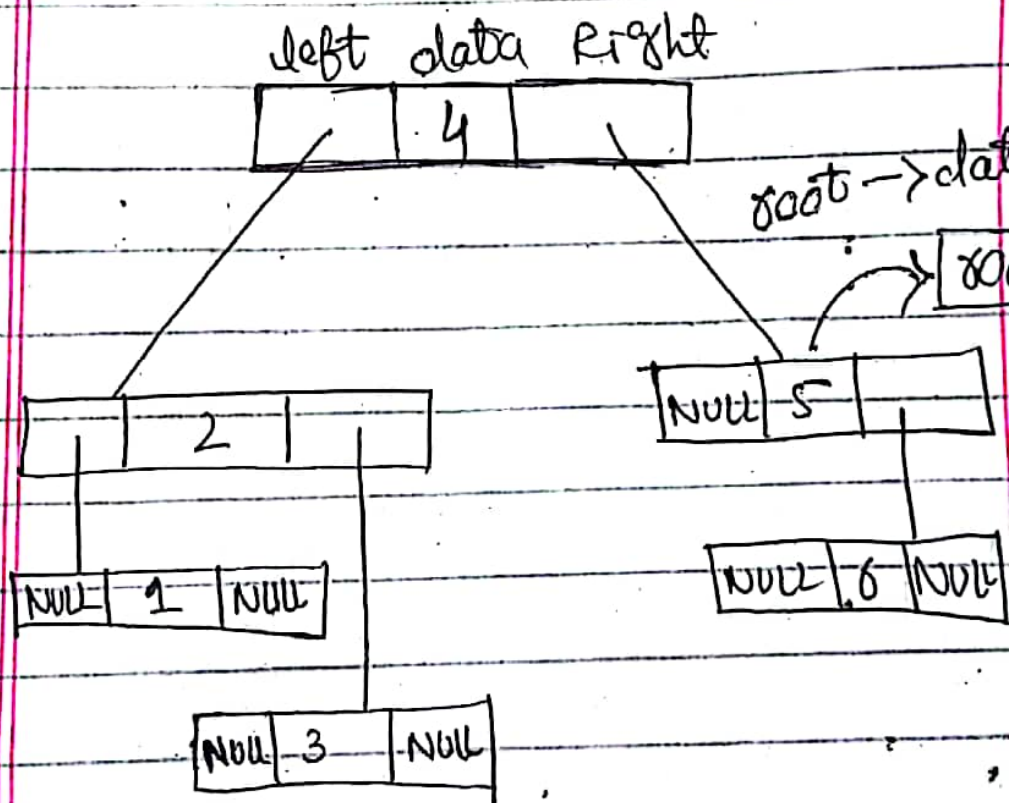 left data Right
4
root → dat
ro
NULL 5
2
NULL 6 NULL
NULL 1 NULL
NULL 3 NULL